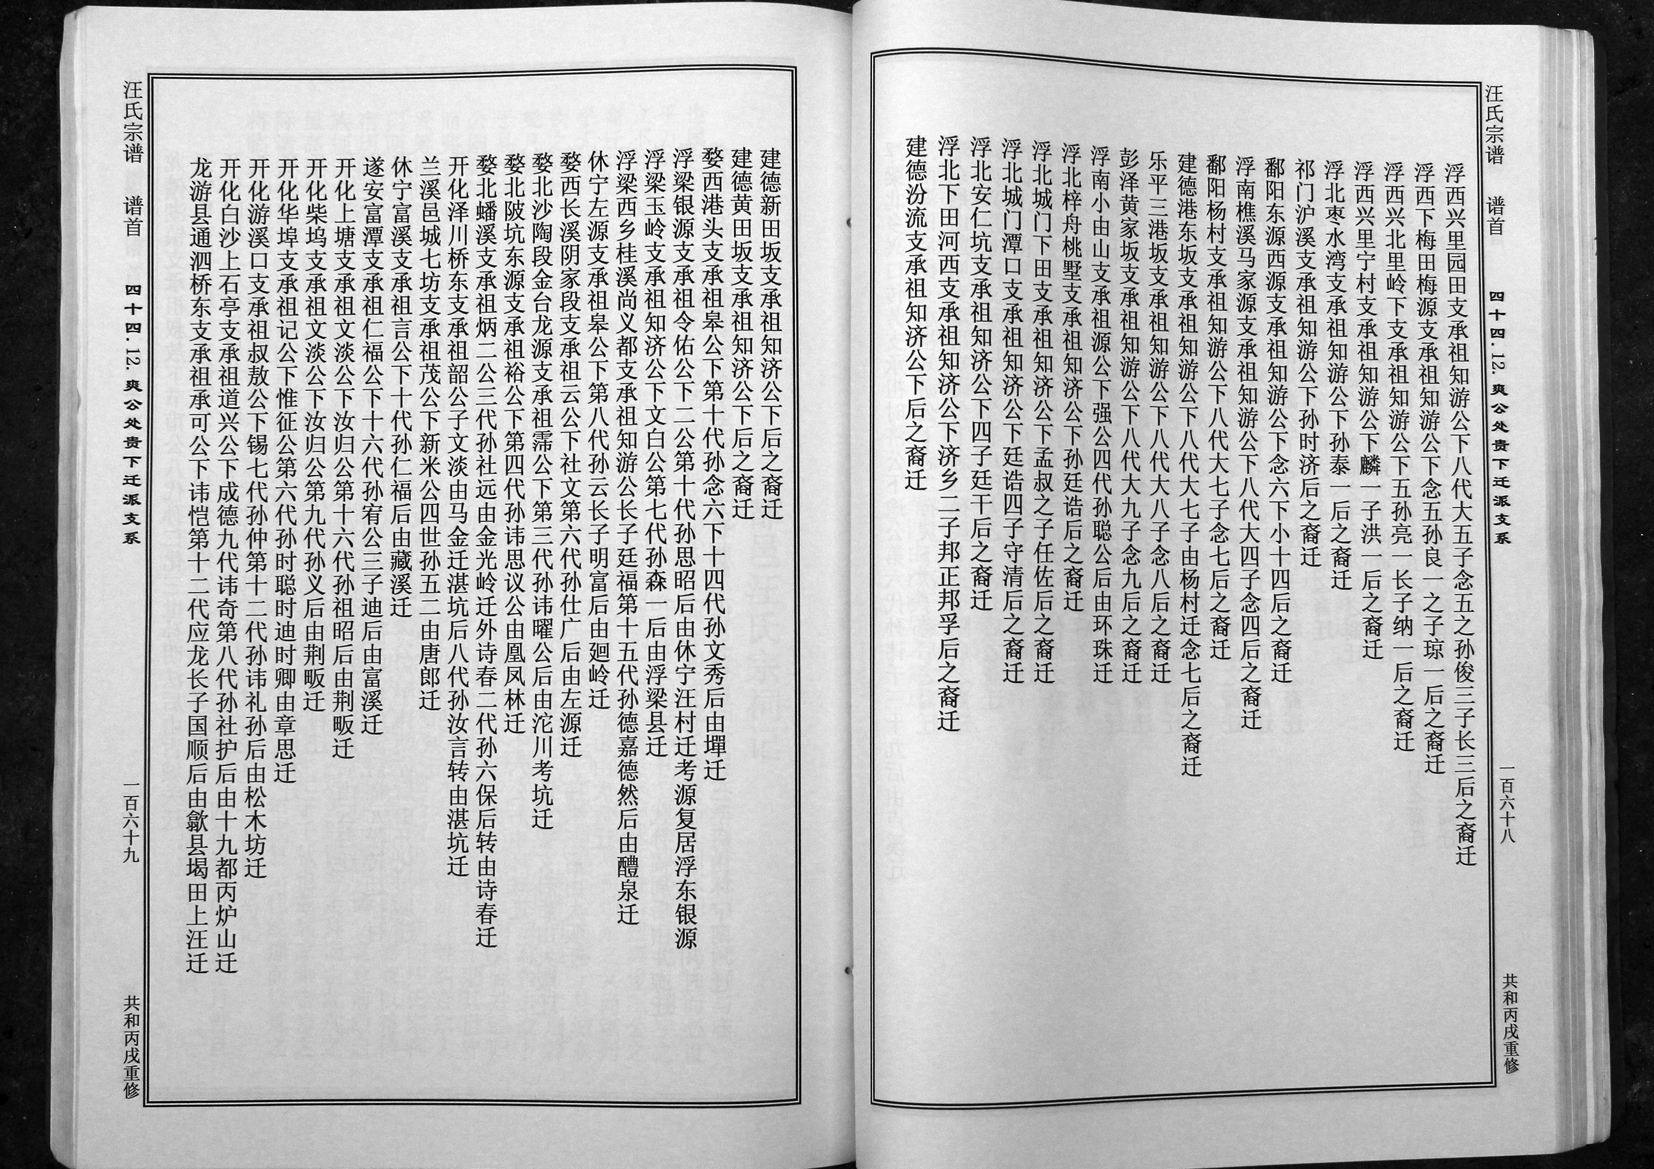 汪氏宗谱 谱首 四十四.12.爽公处贵下迁派支系 一百六十八 共和丙戌重修
浮西兴里园田支承祖知游公下八代大五子念五之孙俊三子长三后之裔迁
浮西下梅田梅源支承祖知游公下念五孙良一之子琼一后之裔迁
浮西兴北里岭下支承祖知游公下五孙亮一长子纳一后之裔迁
浮西兴里宁村支承祖知游公下麟一子洪一后之裔迁
浮北枣水湾支承祖知游公下孙泰一后之裔迁
祁门沪溪支承祖知游公下孙时济后之裔迁
鄱阳东源西源支承祖知游公下念六下小十四后之裔迁
浮南樵溪马家源支承祖知游公下八代大四子念四后之裔迁
鄱阳杨村支承祖知游公下八代大七子念七后之裔迁
建德港东坂支承祖知游公下八代大七子由杨村迁念七后之裔迁
乐平三港坂支承祖知游公下八代大八子念八后之裔迁
彭泽黄家坂支承祖知游公下八代大九子念九后之裔迁
浮南小由山支承祖源公下强公四代孙聪公后由环珠迁
浮北梓舟桃墅支承祖知济公下孙廷诰后之裔迁
浮北城门下田支承祖知济公下孟叔之子任佐后之裔迁
浮北城门潭口支承祖知济公下廷诰四子守清后之裔迁
浮北安仁坑支承祖知济公下四子廷干后之裔迁
浮北下田河西支承祖知济公下济乡二子邦正邦孚后之裔迁
建德汾流支承祖知济公下后之裔迁
建德新田坂支承祖知济公下后之裔迁
建德黄田坂支承祖知济公下后之裔迁
婺西港头支承祖皋公下第十代孙念六下十四代孙文秀后由墠迁
浮梁银源支承祖令佑公下二公第十代孙思昭后由休宁汪村迁考源复居浮东银源
浮梁玉岭支承祖知济公下文白公第七代孙森一后由浮梁县迁
浮梁西乡桂溪尚义都支承祖知游公长子廷福第十五代孙德嘉德然后由醴泉迁
休宁左源支承祖皋公下第八代孙云长子明富后由廻岭迁
婺西长溪阴家段支承祖云公下社文第六代孙仕广后由左源迁
婺北沙陶段金台龙源支承祖霈公下第三代孙讳曜公后由沱川考坑迁
婺北陂坑东源支承祖裕公下第四代孙讳思议公由凰凤林迁
婺北蟠溪支承祖炳二公三代孙社远由金光岭迁外诗春二代孙六保后转由诗春迁
开化泽川桥东支承祖韶公子文淡由马金迁湛坑后八代孙汝言转由湛坑迁
兰溪邑城七坊支承祖茂公下新米公四世孙五二由唐郎迁
休宁富溪支承祖言公下十代孙仁福后由藏溪迁
遂安富潭支承祖仁福公下十六代孙宥公三子迪后由富溪迁
开化上塘支承祖文淡公下汝归公第十六代孙祖昭后由荆畈迁
开化柴坞支承祖文淡公下汝归公第九代孙义后由荆畈迁
开化华埠支承祖记公下惟征公第六代孙时聪时迪时卿由章思迁
开化游溪口支承祖叔敖公下锡七代孙仲第十二代孙讳礼孙后由松木坊迁
开化白沙上石亭支承祖道兴公下成德九代讳奇第八代孙社护后由十九都丙炉山迁
龙游县通泗桥东支承祖承可公下讳恺第十二代应龙长子国顺后由歙县堨田上汪迁
汪氏宗谱 谱首 四十四.12.爽公处贵下迁派支系 一百六十九 共和丙戌重修